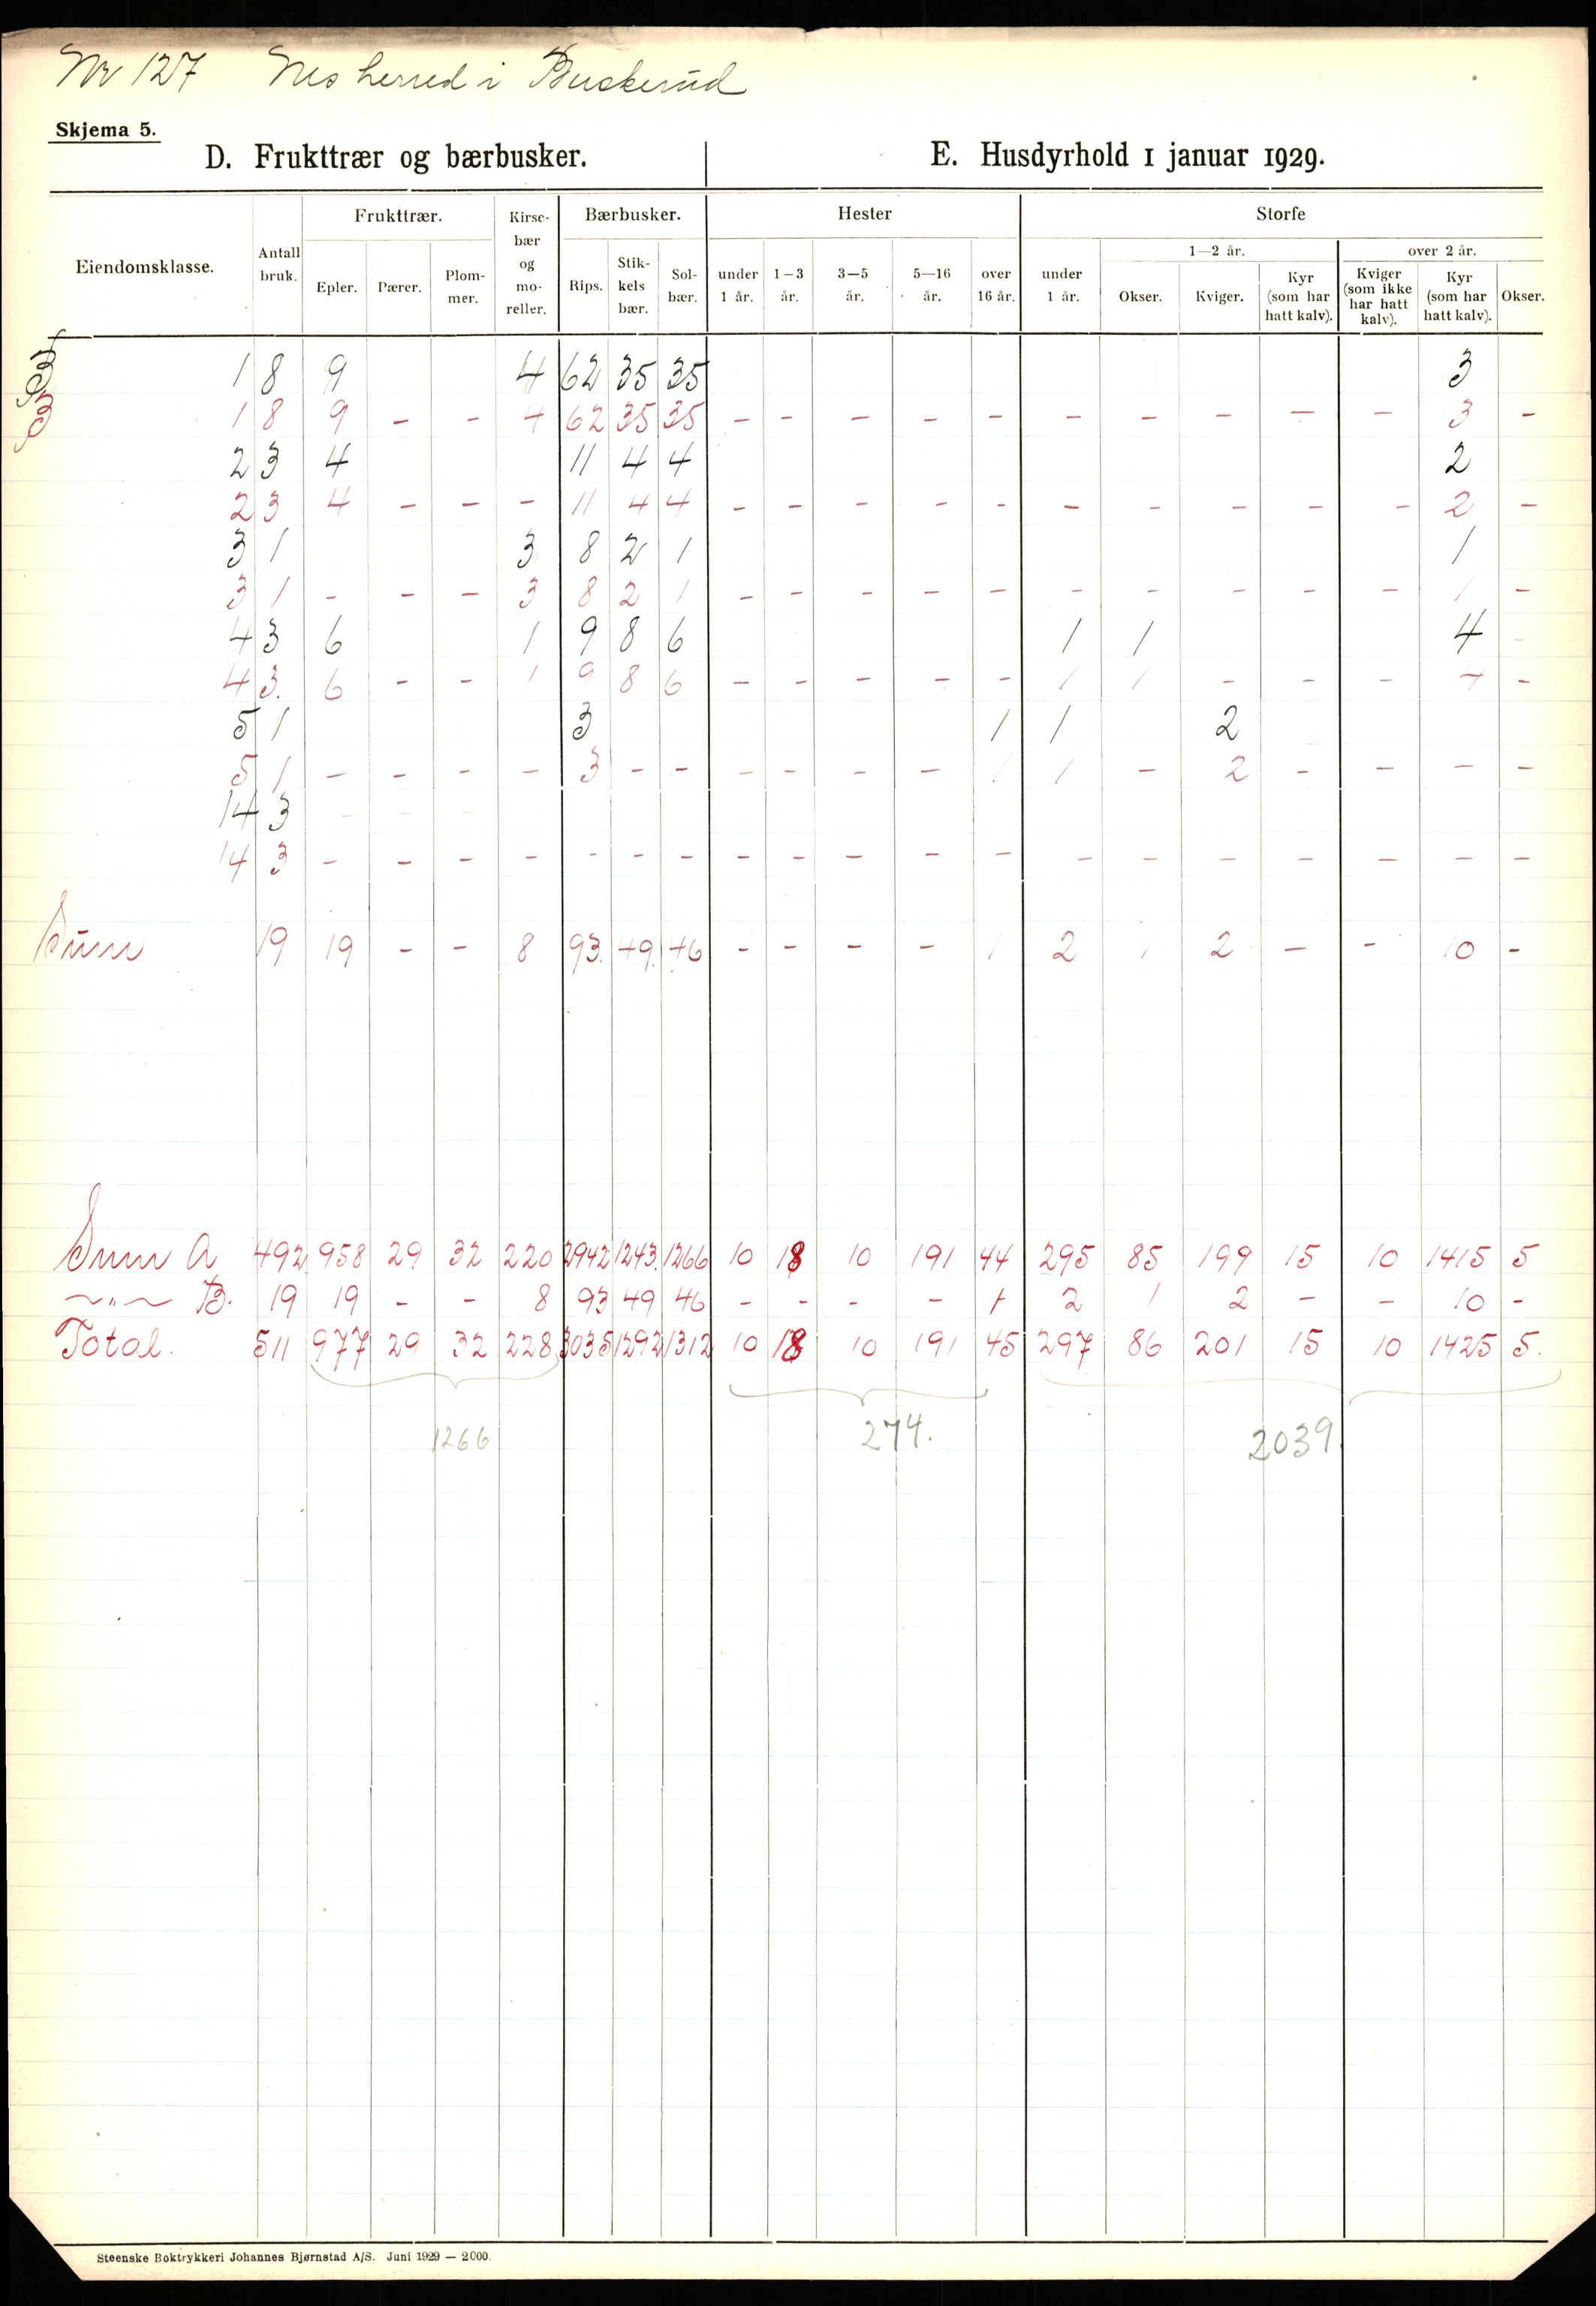 Nr 127 Nes herred i Buskerud
Skjema 5.
D. Frukttrær og bærbusker. E. Husdyrhold 1 januar 1929.
Eiendomsklasse. Antall bruk. Frukttrær. Epler. Pærer. Plom-mer. Kirse-bær og mo-reller. Bærbusker. Rips. Stik-kels bær. Sol-bær. Hester under 1 år. 1–3 år. 3–5 år. 5–16 år. over 16 år. Storfe under 1 år. 1–2 år. Okser. Kviger. Kyr (som har hatt kalv). over 2 år. Kviger (som ikke har hatt kalv). Kyr (som har hatt kalv). Okser.
B
1 8 9 4 62 35 35 3
B
1 8 9 - - 4 62 35 35 - - - - - - - - - - 3 -
2 3 4 11 4 4 2
2 3 4 - - - 11 4 4 - - - - - - - - - - 2 -
3 1 3 8 2 1 1
3 1 - - - 3 8 2 1 - - - - - - - - - - 1 -
4 3 6 1 9 8 6 1 1 4
4 3. 6 - - 1 9 8 6 - - - - - 1 1 - - - 4 -
5 1 3 1 1 2
5 1 - - - - 3 - - - - - - 1 1 - 2 - - - -
14 3
14 3 - - - - - - - - - - - - - - - - - - -
Sum 19 19 - - 8 93. 49. 46 - - - - 1 2 1 2 - - 10 -
Sum A 492 958 29 32 220 2942 1243. 1266 10 18 10 191 44 295 85 199 15 10 1415 5
~"~ B. 19 19 - - 8 93 49 46 - - - - 1 2 1 2 - - 10 -
Total. 511 977 29 32 228 3035 1292 1312 10 18 10 191 45 297 86 201 15 10 1425 5.
1266 274. 2039
Steenske Boktrykkeri Johannes Bjørnstad A/S. Juni 1929 — 2000.